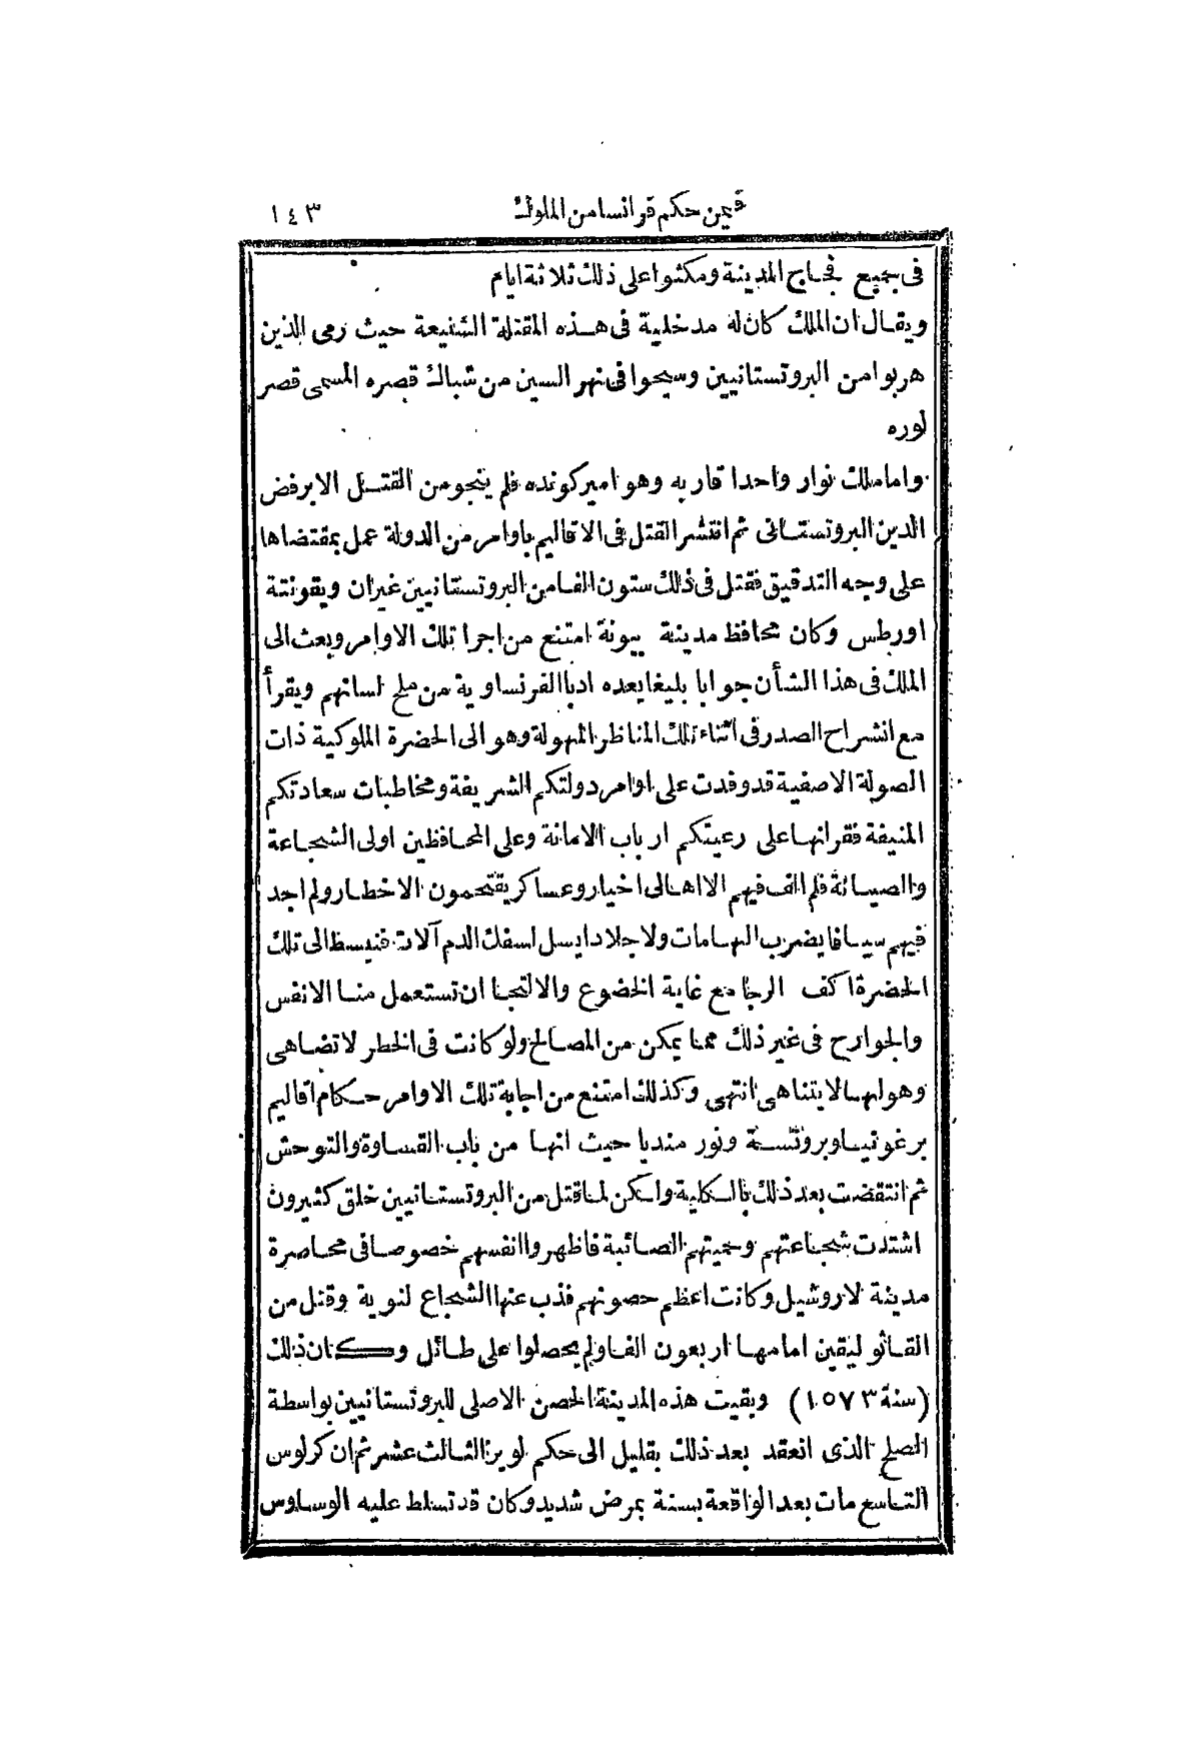 فيمن حكم فرانسا من الملوك ١٤٣
فى جميع فجاج المدينة ومكثوا على ذلك ثلاثة ايام
ويقال ان الملك كان له مدخلية فى هذه المقتلة الشنيعة حيث رمى الذين
هربوا من البروتستانيين وسبحوا فى نهر السين من شباك قصره المسمى قصر
لوره
واما ملك نوار واحدا قاربه وهو امير كونده فلم ينجو من القتل الا برفض
الدين البروتستانى ثم انتشر القتل فى الاقاليم باوامر من الدولة عمل بمقتضاها
على وجه التدقيق فقتل فى ذلك ستون الفا من البروتستانيين غيران ويقونتة
اورطس وكان محافظ مدينة بيونة امتنع من اجرا تلك الاوامر وبعث الى
الملك فى هذا الشأن جوابا بليغا يعده ادبا الفرنساوية من ملح لسانهم ويقرأ
مع انشراح الصدر فى اثناء تلك المناظر المهولة وهو الى الحضرة الملوكية ذات
الصولة الاصفية قد وفدت على اوامر دولتكم الشريفة ومخاطبات سعادتكم
المنيفة فقرانها على رعيتكم ارباب الامانة وعلى المحافظين اولى الشجاعة
والصيانة فلم الف فيهم الا اهالى اخيار وعساكر يقتحمون الاخطار ولم اجد
فيهم سيافا يضرب الهامات ولا جلادا يسل لسفك الدم آلات فنبسط الى تلك
الحضرة اكف الرجا مع غاية الخضوع والالتجا ان تستعمل منا الانفس
والجوارح فى غير ذلك مما يمكن من المصالح ولو كانت فى الخطر لا تضاهى
وهولها لا يتناهى انتهى وكذلك امتنع من اجابة تلك الاوامر حكام اقاليم
برغونيا وبروتنسة ونورمنديا حيث انها من باب القساوة والتوحش
ثم انتقضت بعد ذلك بالكلية ولكن لما قتل من البروتستانيين خلق كثيرون
اشتدت شجاعتهم وحميتهم الصائبة فاظهروا انفسهم خصوصا فى محاصرة
مدينة لاروشيل وكانت اعظم حصونهم فذب عنها الشجاع لنوية وقتل من
القاثوليقين امامها اربعون الفا ولم يحصلوا على طائل وكان ذلك
(سنة ١٥٧٣) وبقيت هذه المدينة الحصن الاصلى للبروتستانيين بواسطة
الصلح الذى انعقد بعد ذلك بقليل الى حكم لويز الثالث عشر ثم ان كرلوس
التاسع مات بعد الواقعة بسنة بمرض شديد وكان قد تسلط عليه الوساوس